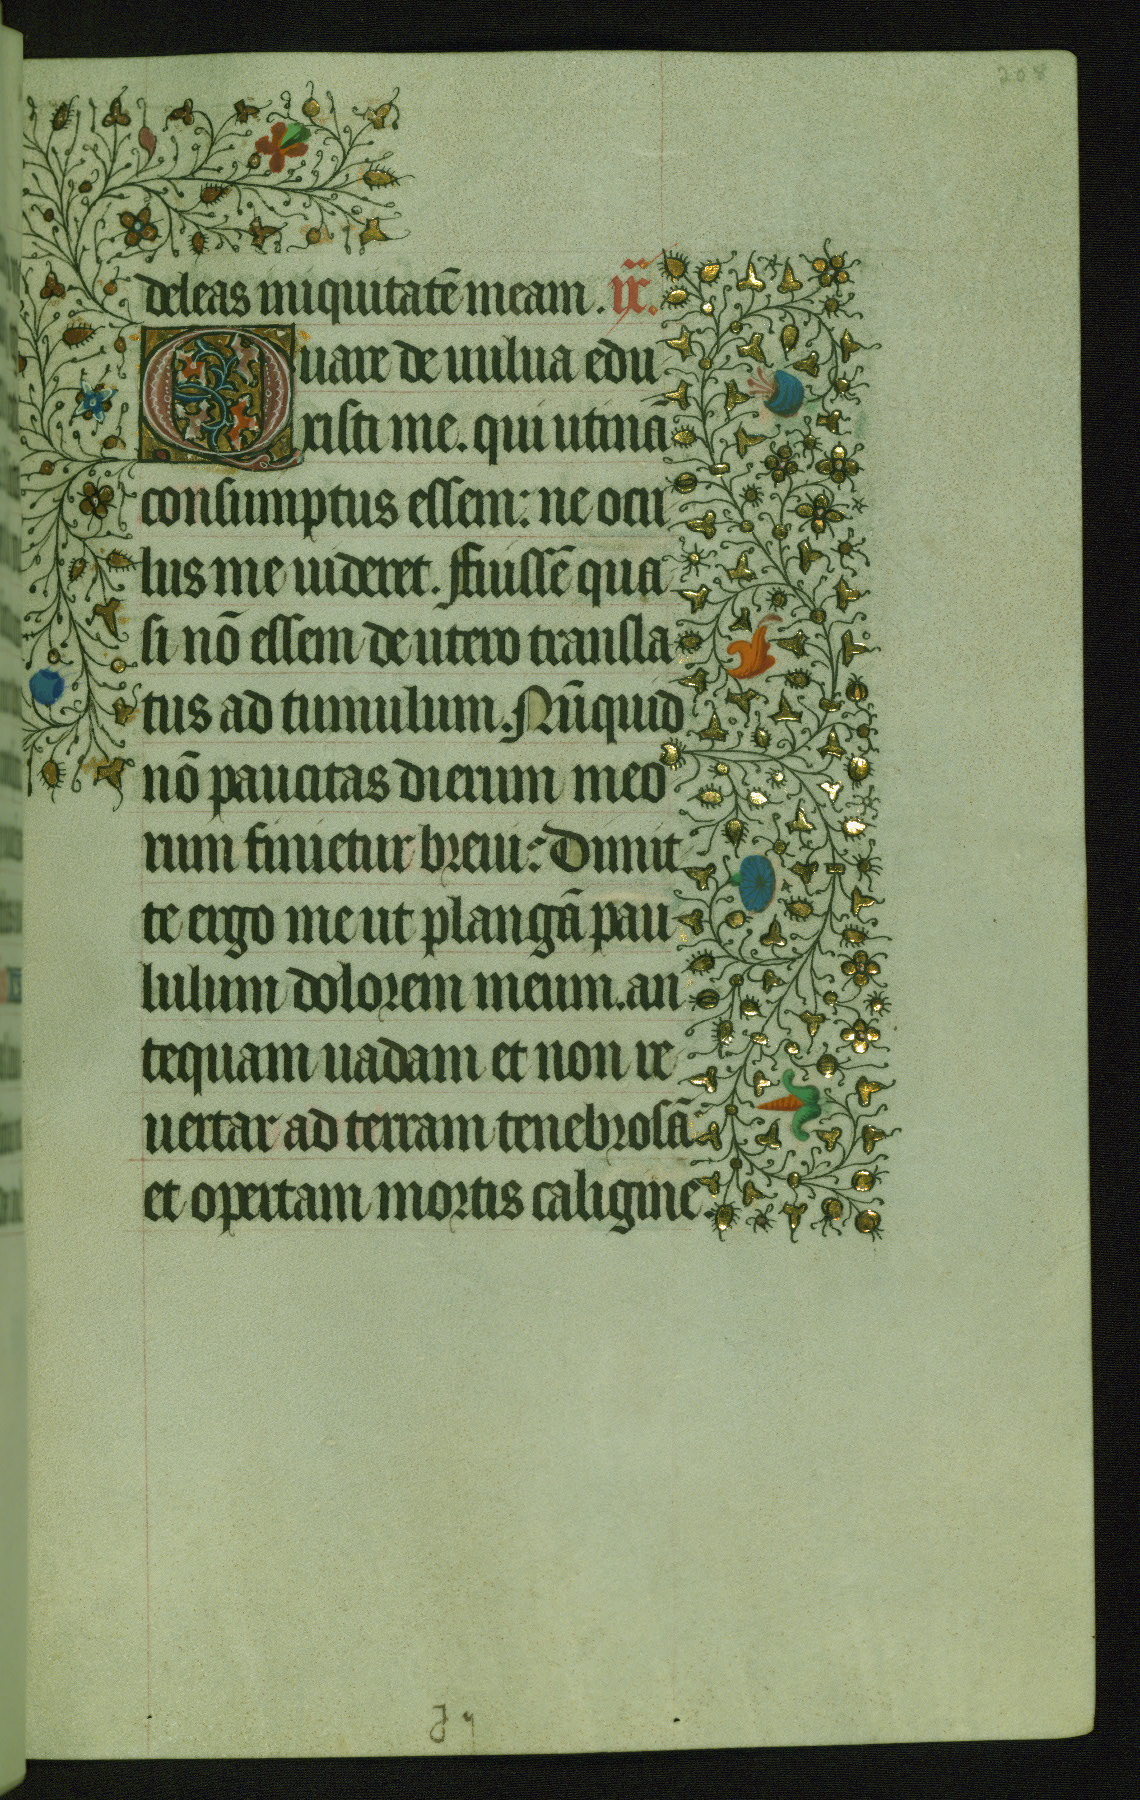 208
deleas iniquitatē meam. ix.
Quare de uulua edu
xisti me. qui utinā
consumptus essem: ne ocu
lus me uideret. Fuissē qua
si nō essem de utero transla
tus ad tumulum. Nūquid
nō paucitas dierum meo
rum finietur breui: Dimit
te ergo me ut plangā pau
lulum dolorem meum. an
tequam uadam et non re
uertar ad terram tenebrosā
et opertam mortis caligine.